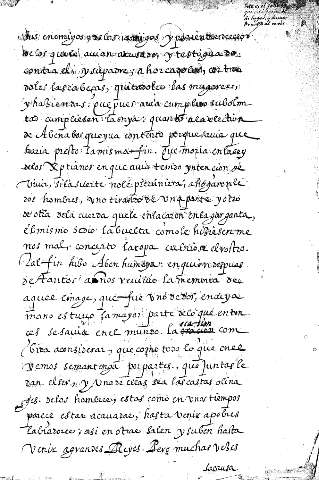 sus enemigos y de los amigos y parientes
de los quales avian acusado, y testiguado
contra el: y su padre; ahorcadoles, cortan
doles las cabeças, quitadoles las mugeres,
y haziendas: que pues avia cumplido su volun
tad cumpliesen la suya: quanto a la election
de Abenabo que yva contento porque savia que
havia presto la misma fin. que moria en la ley
de los Xptianos en que avia tenido yntencion de
vivir, si la suerte no le previniera; ahogaronle
dos hombres, uno tirando de una parte y otro
de otra de la cuerda que le enlaçaron en la garganta,
el mismo se dio la buelta como le hiziesen me
nos mal; concerto la ropa cubriose el rostro.
Tal fin hizo Aben humeya: en quien despues
de tantos años revivio la memoria de
aquel linage, que fue uno de dos, en cuya
mano estuvo la mayor parte de lo que enton
ces se savia en el mundo. la ocasion com
bida a considerar, que como todo lo que en el
vemos se mantenga por partes, que juntas le
dan el ser; y una de ellas sea las castas o lina
ges de los hombres; estas como en unos tiempos
parece estar acavadas, hasta venir a pobres
labradores; asi en otros salen y suben hasta
venir a grandes Reyes. Pero muchas vezes
la causa